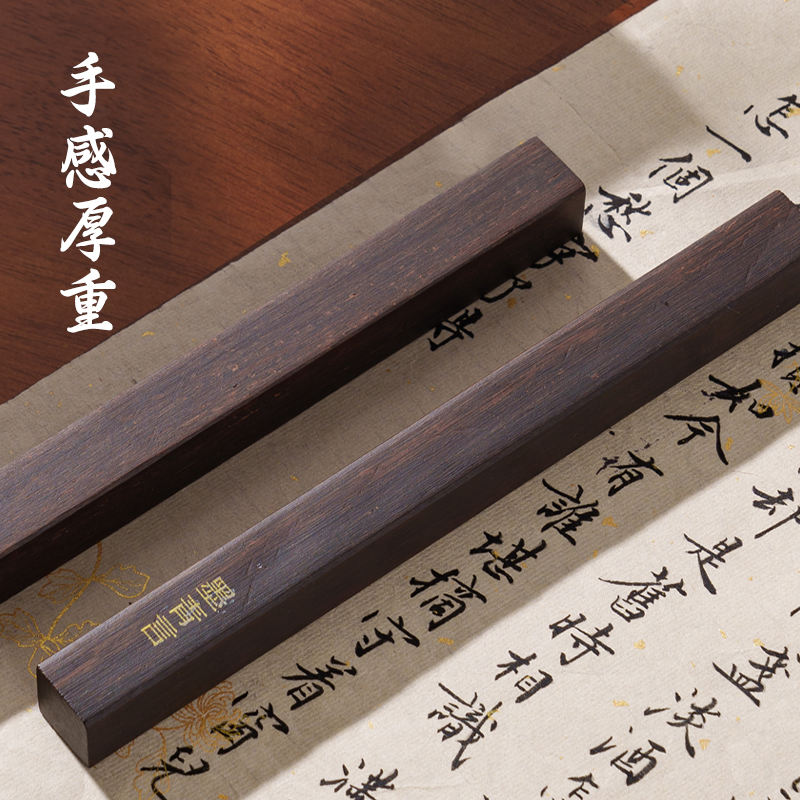 手感厚重
墨青言
盞淡酒怎
却是舊時相識滿
如今有誰堪摘守着窗兒
怎一個愁
了得